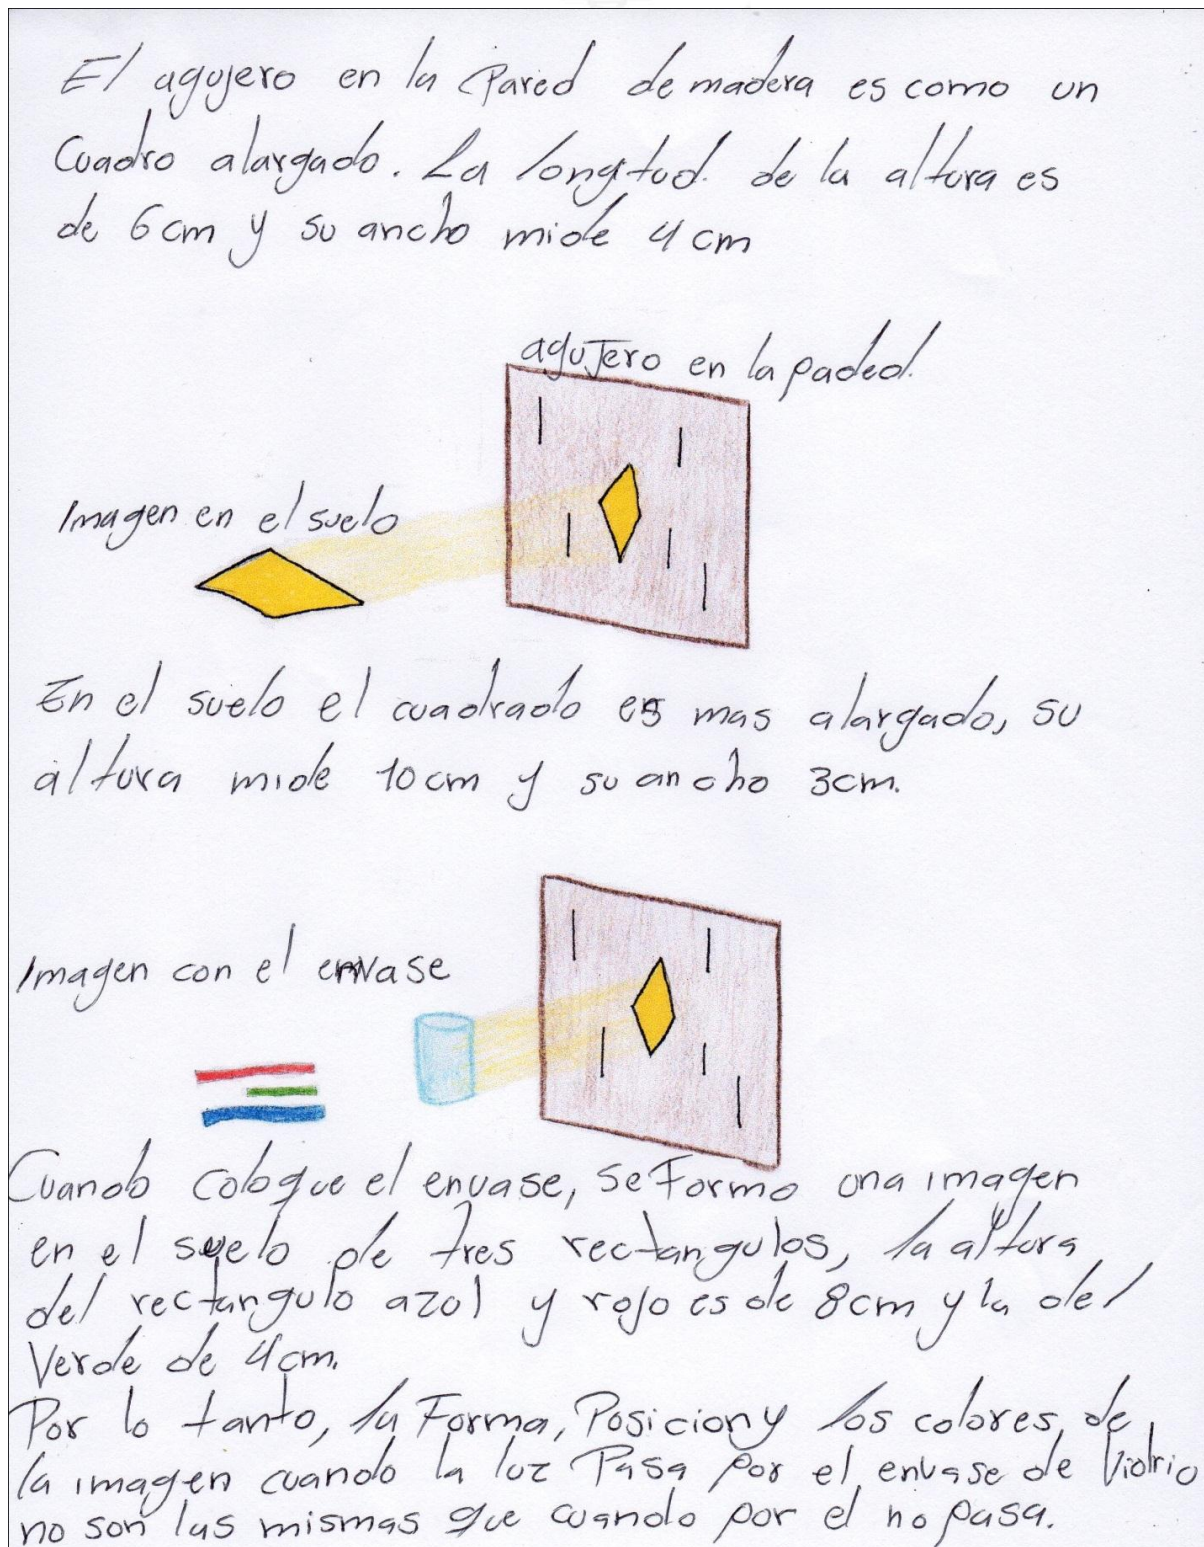 El agujero en la Pared de madera es como un
Cuadro alargado. La longitud de la altura es
de 6 cm y su ancho mide 4 cm
agujero en la paded.
Imagen en el suelo
En el suelo el cuadrado es mas alargado, su
altura mide 10 cm y su ancho 3cm.
Imagen con el envase
Cuando coloque el envase, se Formo una imagen
en el suelo de tres rectangulos, la altura
del rectangulo azul y rojo es de 8cm y la del
Verde de 4cm.
Por lo tanto, la Forma, Posicion y los colores, de
la imagen cuando la luz Pasa por el envase de Vidrio
no son las mismas que cuando por el no pasa.